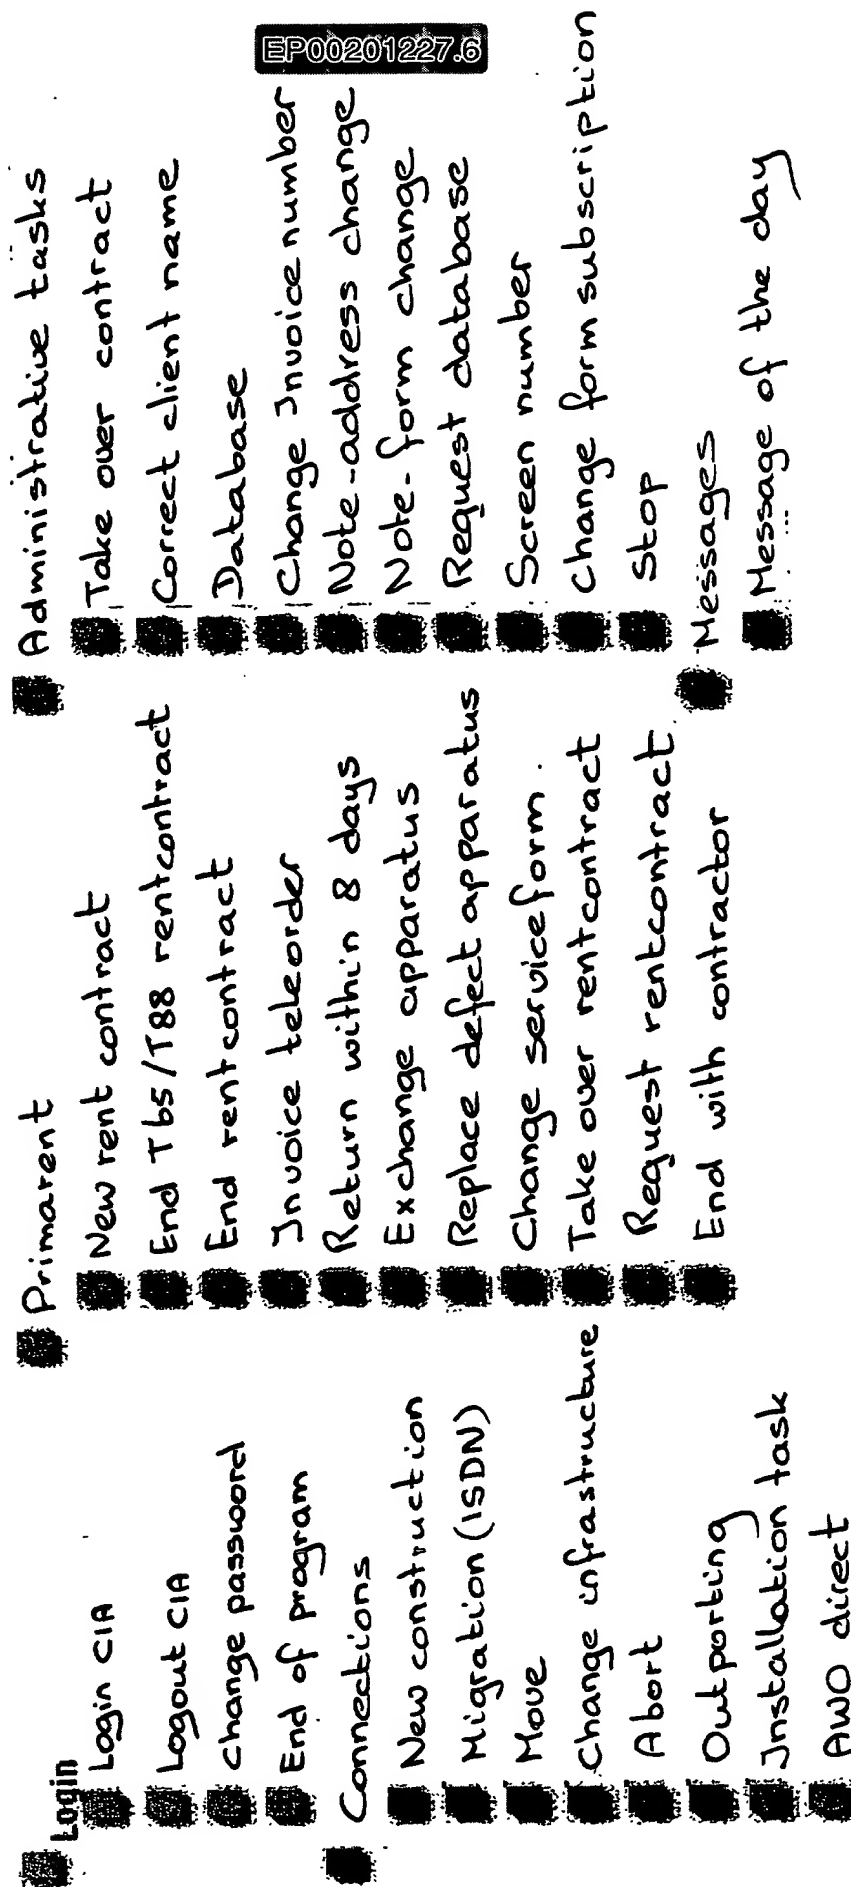 Login
Login CIA
Logout CIA
change password
End of program
Connections
New construction
Migration (ISDN)
Move
Change infrastructure
Abort
Outporting
Installation task
AWO direct
Primarent
New rent contract
End T65/T88 rentcontract
End rentcontract
Invoice teleorder
Return within 8 days
Exchange apparatus
Replace defect apparatus
Change serviceform.
Take over rentcontract
Request rentcontract
End with contractor
Administrative tasks
Take over contract
Correct client name
Database
Change Invoice number
Note-address change
Note-form change
Request database
Screen number
Change form subscription
Stop
Messages
Message of the day
EP00201227.6